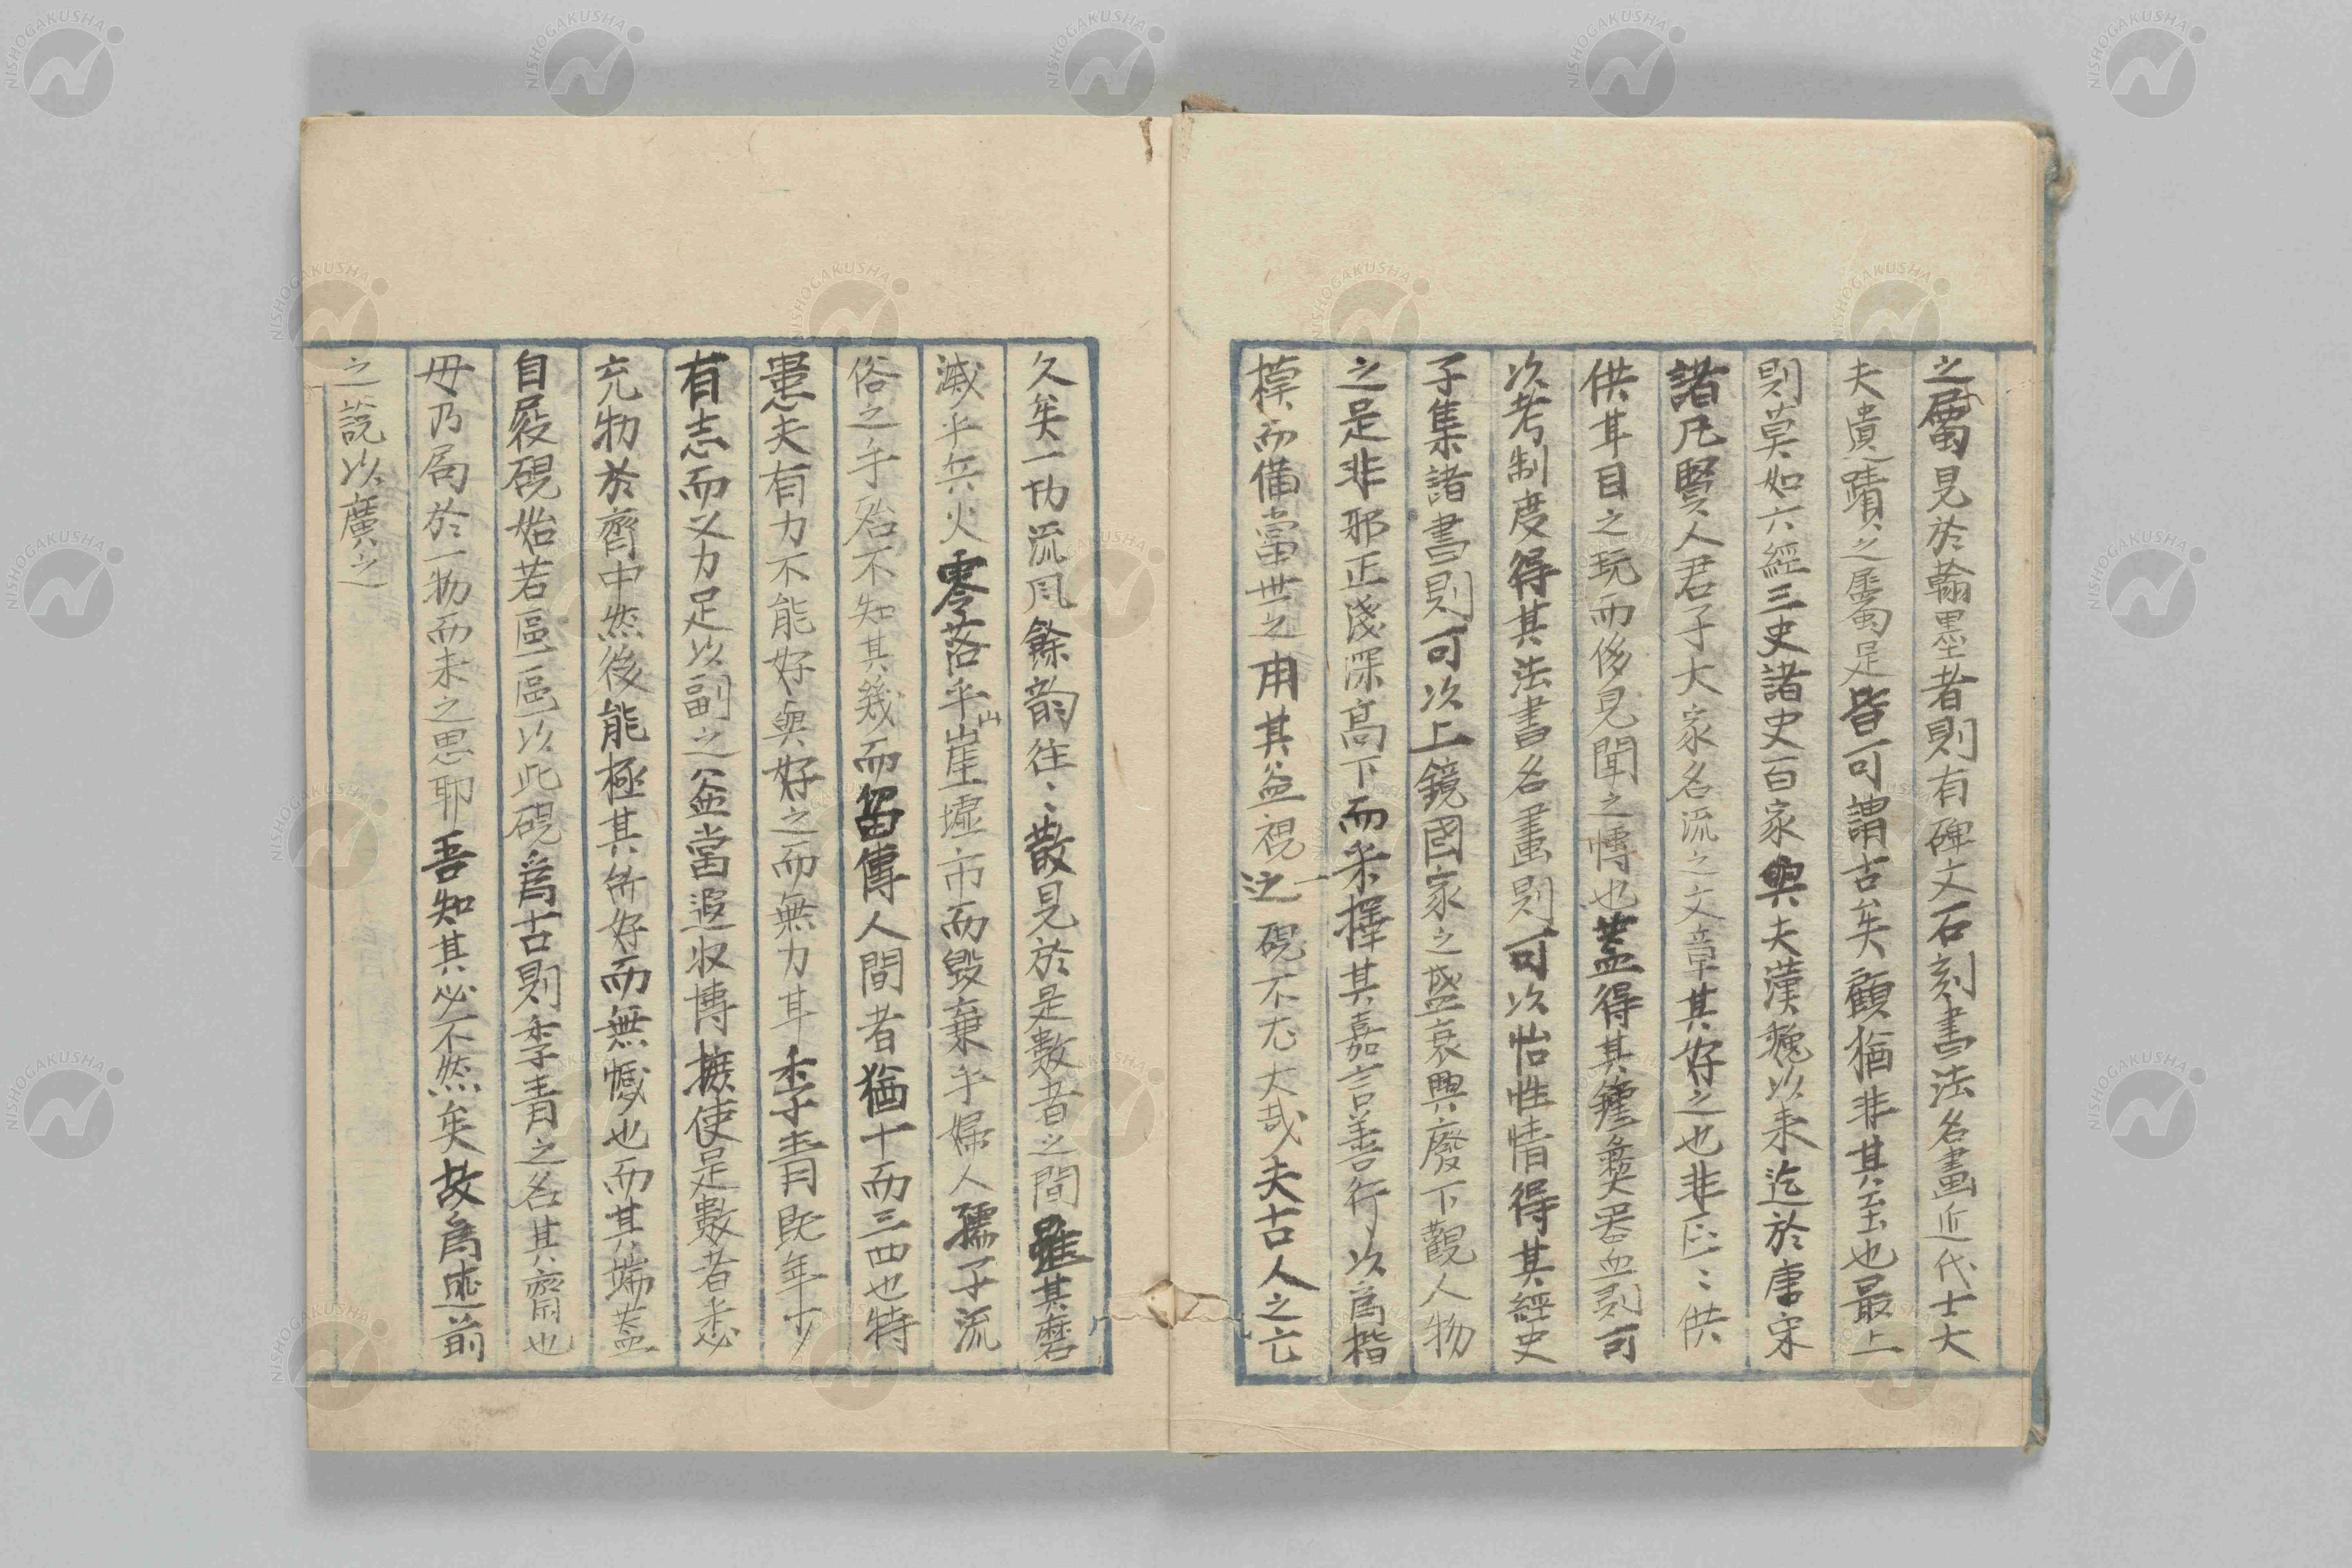 之屬見於翰墨者則有碑文石刻書法名畫近代士大
夫遺蹟之屬足皆可謂古矣顧猶非其至也最上
則莫如六經三史諸史百家與夫漢魏以来迄於唐宋
諸凡賢人君子大家名流之文章其好之也非区〻供
供耳目之玩而侈見聞之慱也盖得其鐘彝罍皿則可
次考制度得其法書名畫則可以怡性情得其經史
子集諸書則可以上鏡國家之盛衰興廢下觀人物
之是非邪正淺深高下而采擇其嘉言善行以爲楷
模而備當世之用其益視之一硯不尤大哉夫古人之亡
久矣一切流風餘韵往〻散見於是數者之間雖其磨
滅乎兵火零落乎山崖墟市而毁棄乎婦人孺子流
俗之手殆不知其幾而留傳人間者猶十而三四也特
患夫有力不能好與好之而無力耳李青既年少
有志而又力足以副之益當遐收博摭使是數者悉
充牣於齋中然後能極其所好而無憾也而其端盖
自段硯始若區區以此硯爲古則李青之名其齋也
毋乃局於一物而未之思耶吾知其必不然矣故爲述前
之説以廣之
NISHOGAKUSHA